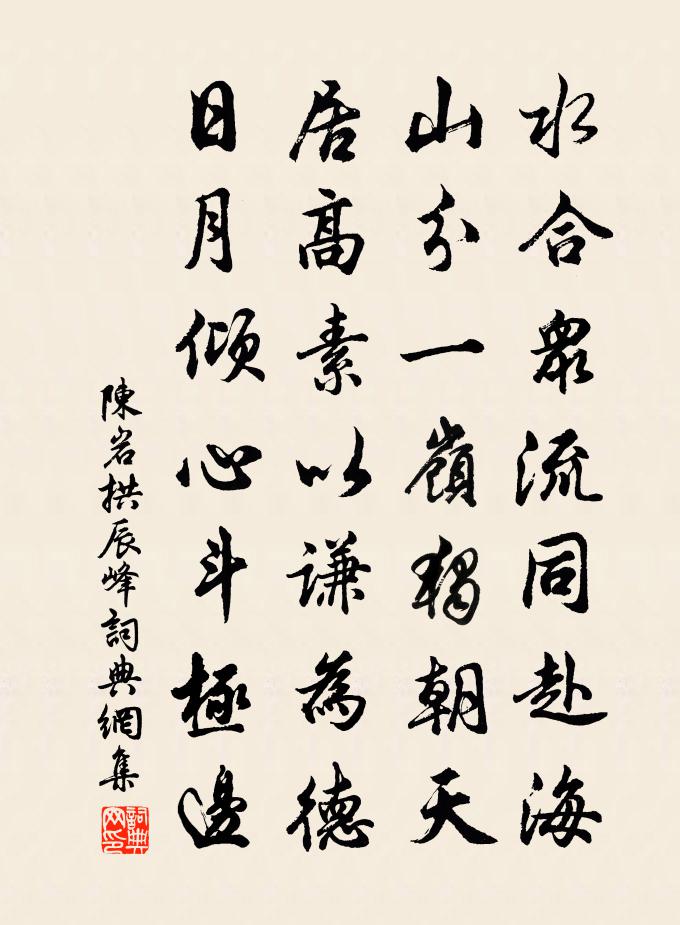 水合衆流同赴海
山分一嶺獨朝天
居高素以謙為德
日月傾心斗極邊
陳岩拱辰峰詞典網集
詞典网印